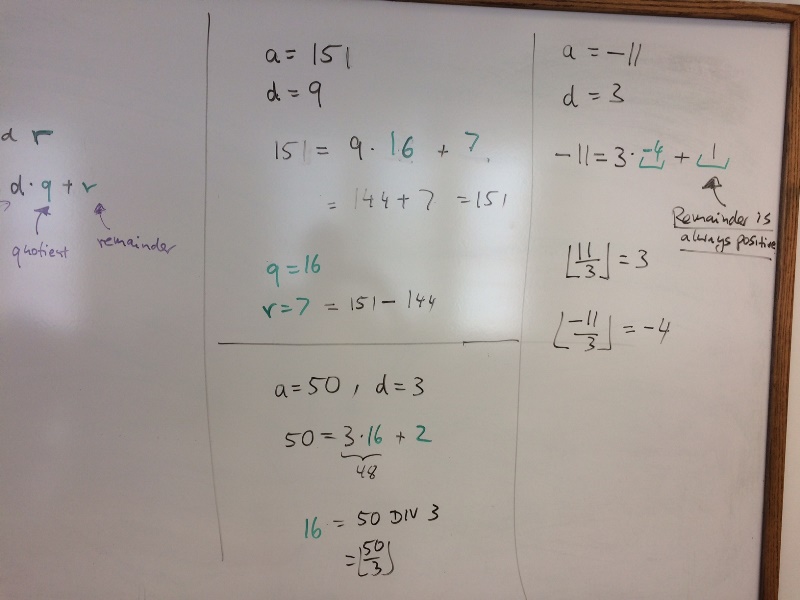 d r
d · q + r
quotient
remainder
a = 151
d = 9
151 = 9 · 16 + 7
= 144 + 7 = 151
q = 16
r = 7 = 151 − 144
a = 50 , d = 3
50 = 3 · 16 + 2
48
16 = 50 DIV 3
= ⌊50/3⌋
a = −11
d = 3
−11 = 3 · −4 + 1
Remainder is
always positive
⌊11/3⌋ = 3
⌊−11/3⌋ = −4